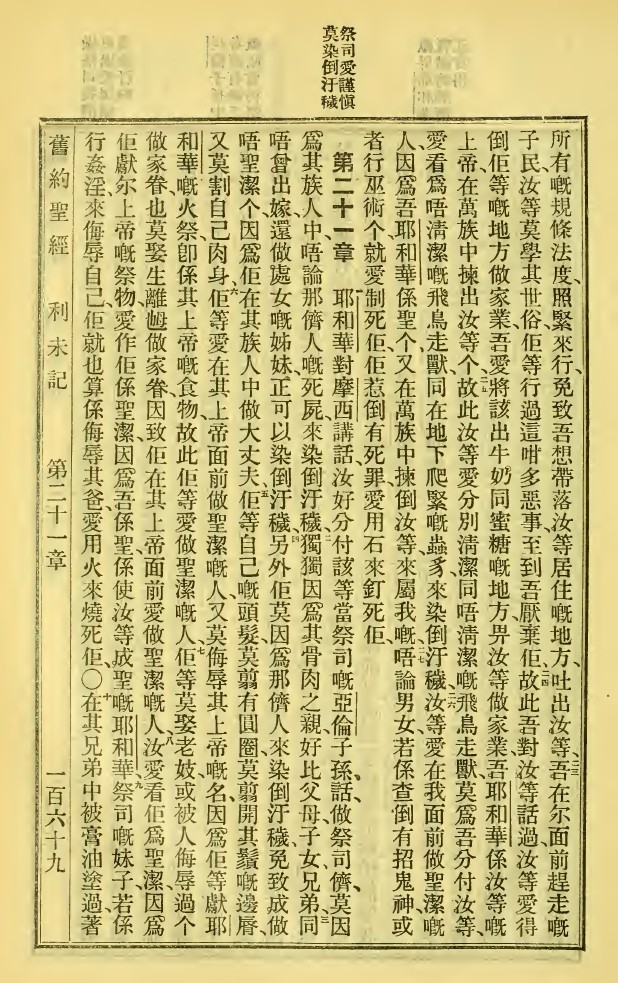 祭司愛謹慎
莫染倒汙穢
所有嘅規條法度、照緊來行、免致吾想帶落汝等居住嘅地方、吐出汝等、二三吾在尔面前趕走嘅
子民、汝等莫學其世俗、佢等行過這咁多惡事、至到吾厭棄佢、二四故此吾對汝等話過、汝等愛得
倒佢等嘅地方做家業、吾愛將該出牛奶同蜜糖嘅地方、畀汝等做家業、吾耶和華係汝等嘅
上帝、在萬族中揀出汝等个、二五故此汝等愛分別清潔同唔清潔嘅飛鳥走獸、莫爲吾分付汝等、
愛看爲唔清潔嘅飛鳥走獸、同在地下爬緊嘅蟲豸、來染倒汙穢、二六汝等愛在我面前做聖潔嘅
人、因爲吾耶和華係聖个、又在萬族中揀倒汝等來屬我嘅、二七唔論男女、若係查倒有招鬼神、或
者行巫術个、就愛制死佢、佢惹倒有死罪、愛用石來釘死佢、
第二十一章　耶和華對摩西講話、汝好分付該等當祭司嘅亞倫子孫、話、做祭司儕、莫因
爲其族人中、唔論那儕人嘅死屍、來染倒汙穢、二獨獨因爲其骨肉之親、好比父母、子女、兄弟、三同
唔曾出嫁、還做處女嘅姊妹、正可以染倒汙穢、四另外佢莫因爲那儕人來染倒汙穢、免致成做
唔聖潔个、因爲佢在其族人中做大丈夫、五佢等自己嘅頭髮、莫翦有圓圈、莫翦開其鬚嘅邊脣、
又莫割自己肉身、六佢等愛在其上帝面前做聖潔嘅人、又莫侮辱其上帝嘅名、因爲佢等獻耶
和華嘅火祭、卽係其上帝嘅食物、故此佢等愛做聖潔嘅人、七佢等莫娶老妓、或被人侮辱過个
做家眷、也莫娶生離嫲做家眷、因致佢在其上帝面前愛做聖潔嘅人、八汝愛看佢爲聖潔、因爲
佢獻尔上帝嘅祭物、愛作佢係聖潔、因爲吾係聖、係使汝等成聖嘅耶和華、九祭司嘅妹子、若係
行姦淫、來侮辱自己、佢就也算係侮辱其爸、愛用火來燒死佢、〇十在其兄弟中、被膏油塗過、著
舊約聖經　利未記　第二十一章　一百六十九